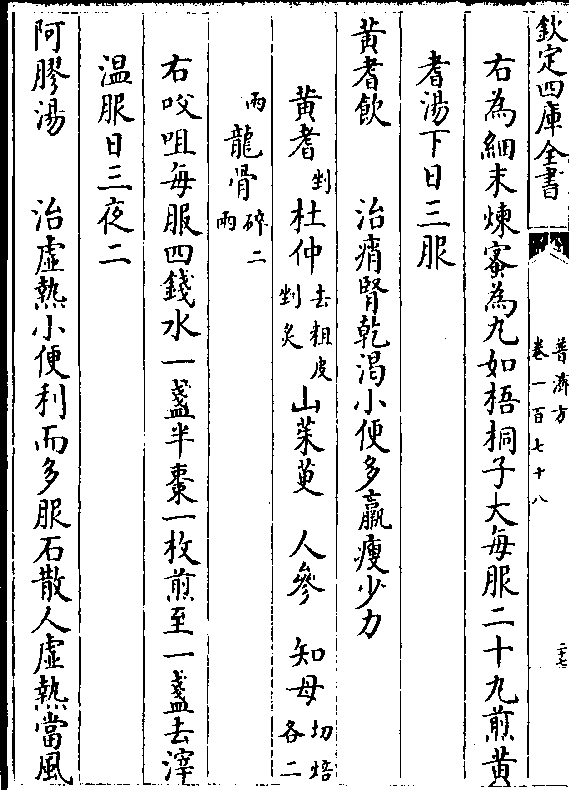 欽定四庫全書
普濟方
卷一百七十八
右為細末煉蜜為丸如梧桐子大每服二十丸煎黄
耆湯下日三服
黄耆飲 治痟腎乾渴小便多羸瘦少力
黄耆剉杜仲去粗皮剉炙山茱萸 人參 知母切焙各二
兩龍骨碎二兩
右㕮咀每服四錢水一盞半棗一枚煎至一盞去滓
温服日三夜二
阿膠湯 治虛熱小便利而多服石散人虛熱當風